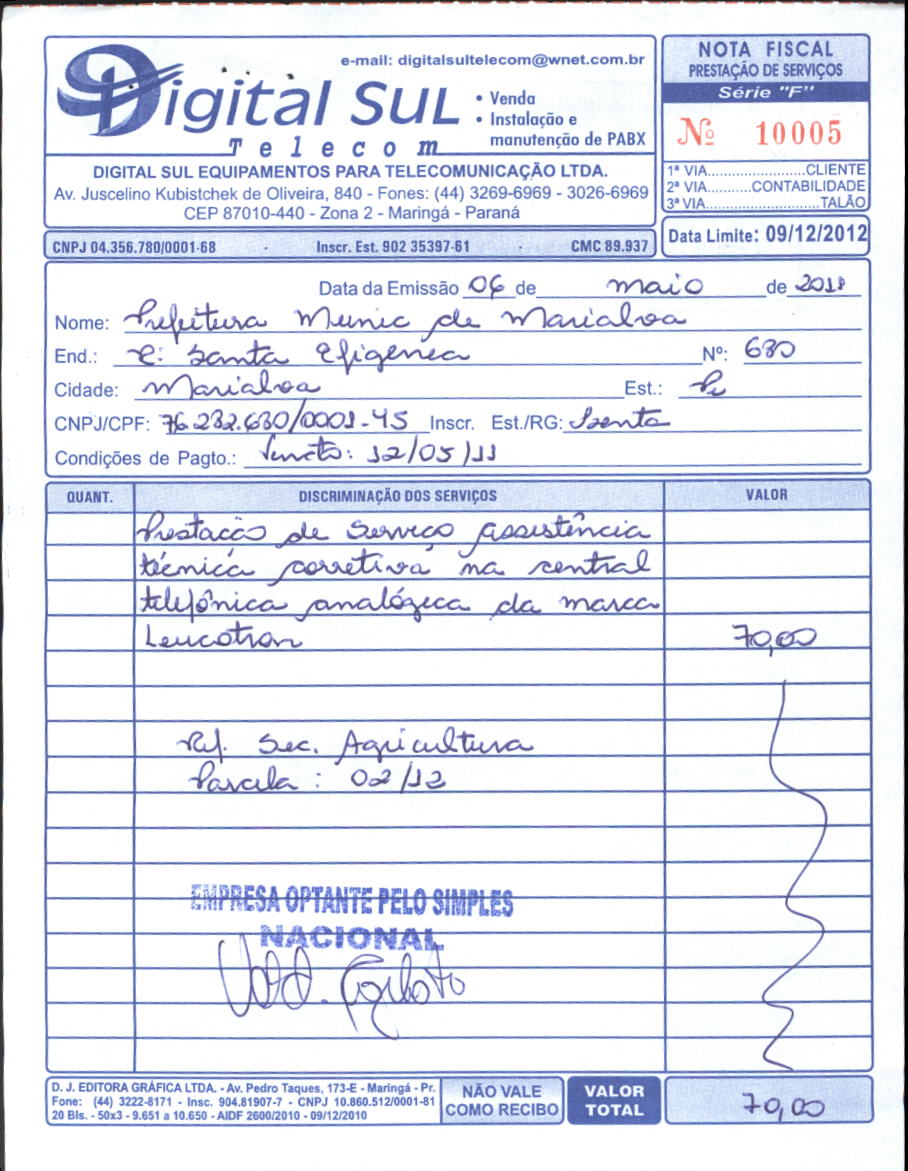 e-mail: digitalsultelecom@wnet.com.br
Digital Sul
Telecom
• Venda
• Instalação e
manutenção de PABX
DIGITAL SUL EQUIPAMENTOS PARA TELECOMUNICAÇÃO LTDA.
Av. Juscelino Kubistchek de Oliveira, 840 - Fones: (44) 3269-6969 - 3026-6969
CEP 87010-440 - Zona 2 - Maringá - Paraná
NOTA FISCAL
PRESTAÇÃO DE SERVIÇOS
Série "F"
Nº 10005
1ª VIA..................CLIENTE
2ª VIA..........CONTABILIDADE
3ª VIA......................TALÃO
CNPJ 04.356.780/0001-68 Inscr. Est. 902 35397-61 CMC 89.937
Data Limite: 09/12/2012
Data da Emissão 06 de maio de 2011
Nome: Prefeitura Munic de Marialva
End.: R: Santa Efigenea Nº: 680
Cidade: Marialva Est.: Pr
CNPJ/CPF: 76.282.680/0001-45 Inscr. Est./RG: Isento
Condições de Pagto.: Vencto: 12/05/11
QUANT. DISCRIMINAÇÃO DOS SERVIÇOS VALOR
Prestação de Serviço assistência
técnica corretiva na central
telefônica analógica da marca
Leucotron 70,00
Ref. Sec. Agricultura
Parcela: 02/12
EMPRESA OPTANTE PELO SIMPLES
NACIONAL
D. J. EDITORA GRÁFICA LTDA. - Av. Pedro Taques, 173-E - Maringá - Pr.
Fone: (44) 3222-8171 - Insc. 904.81907-7 - CNPJ 10.860.512/0001-81
20 Bls. - 50x3 - 9.651 a 10.650 - AIDF 2600/2010 - 09/12/2010
NÃO VALE
COMO RECIBO
VALOR
TOTAL
70,00